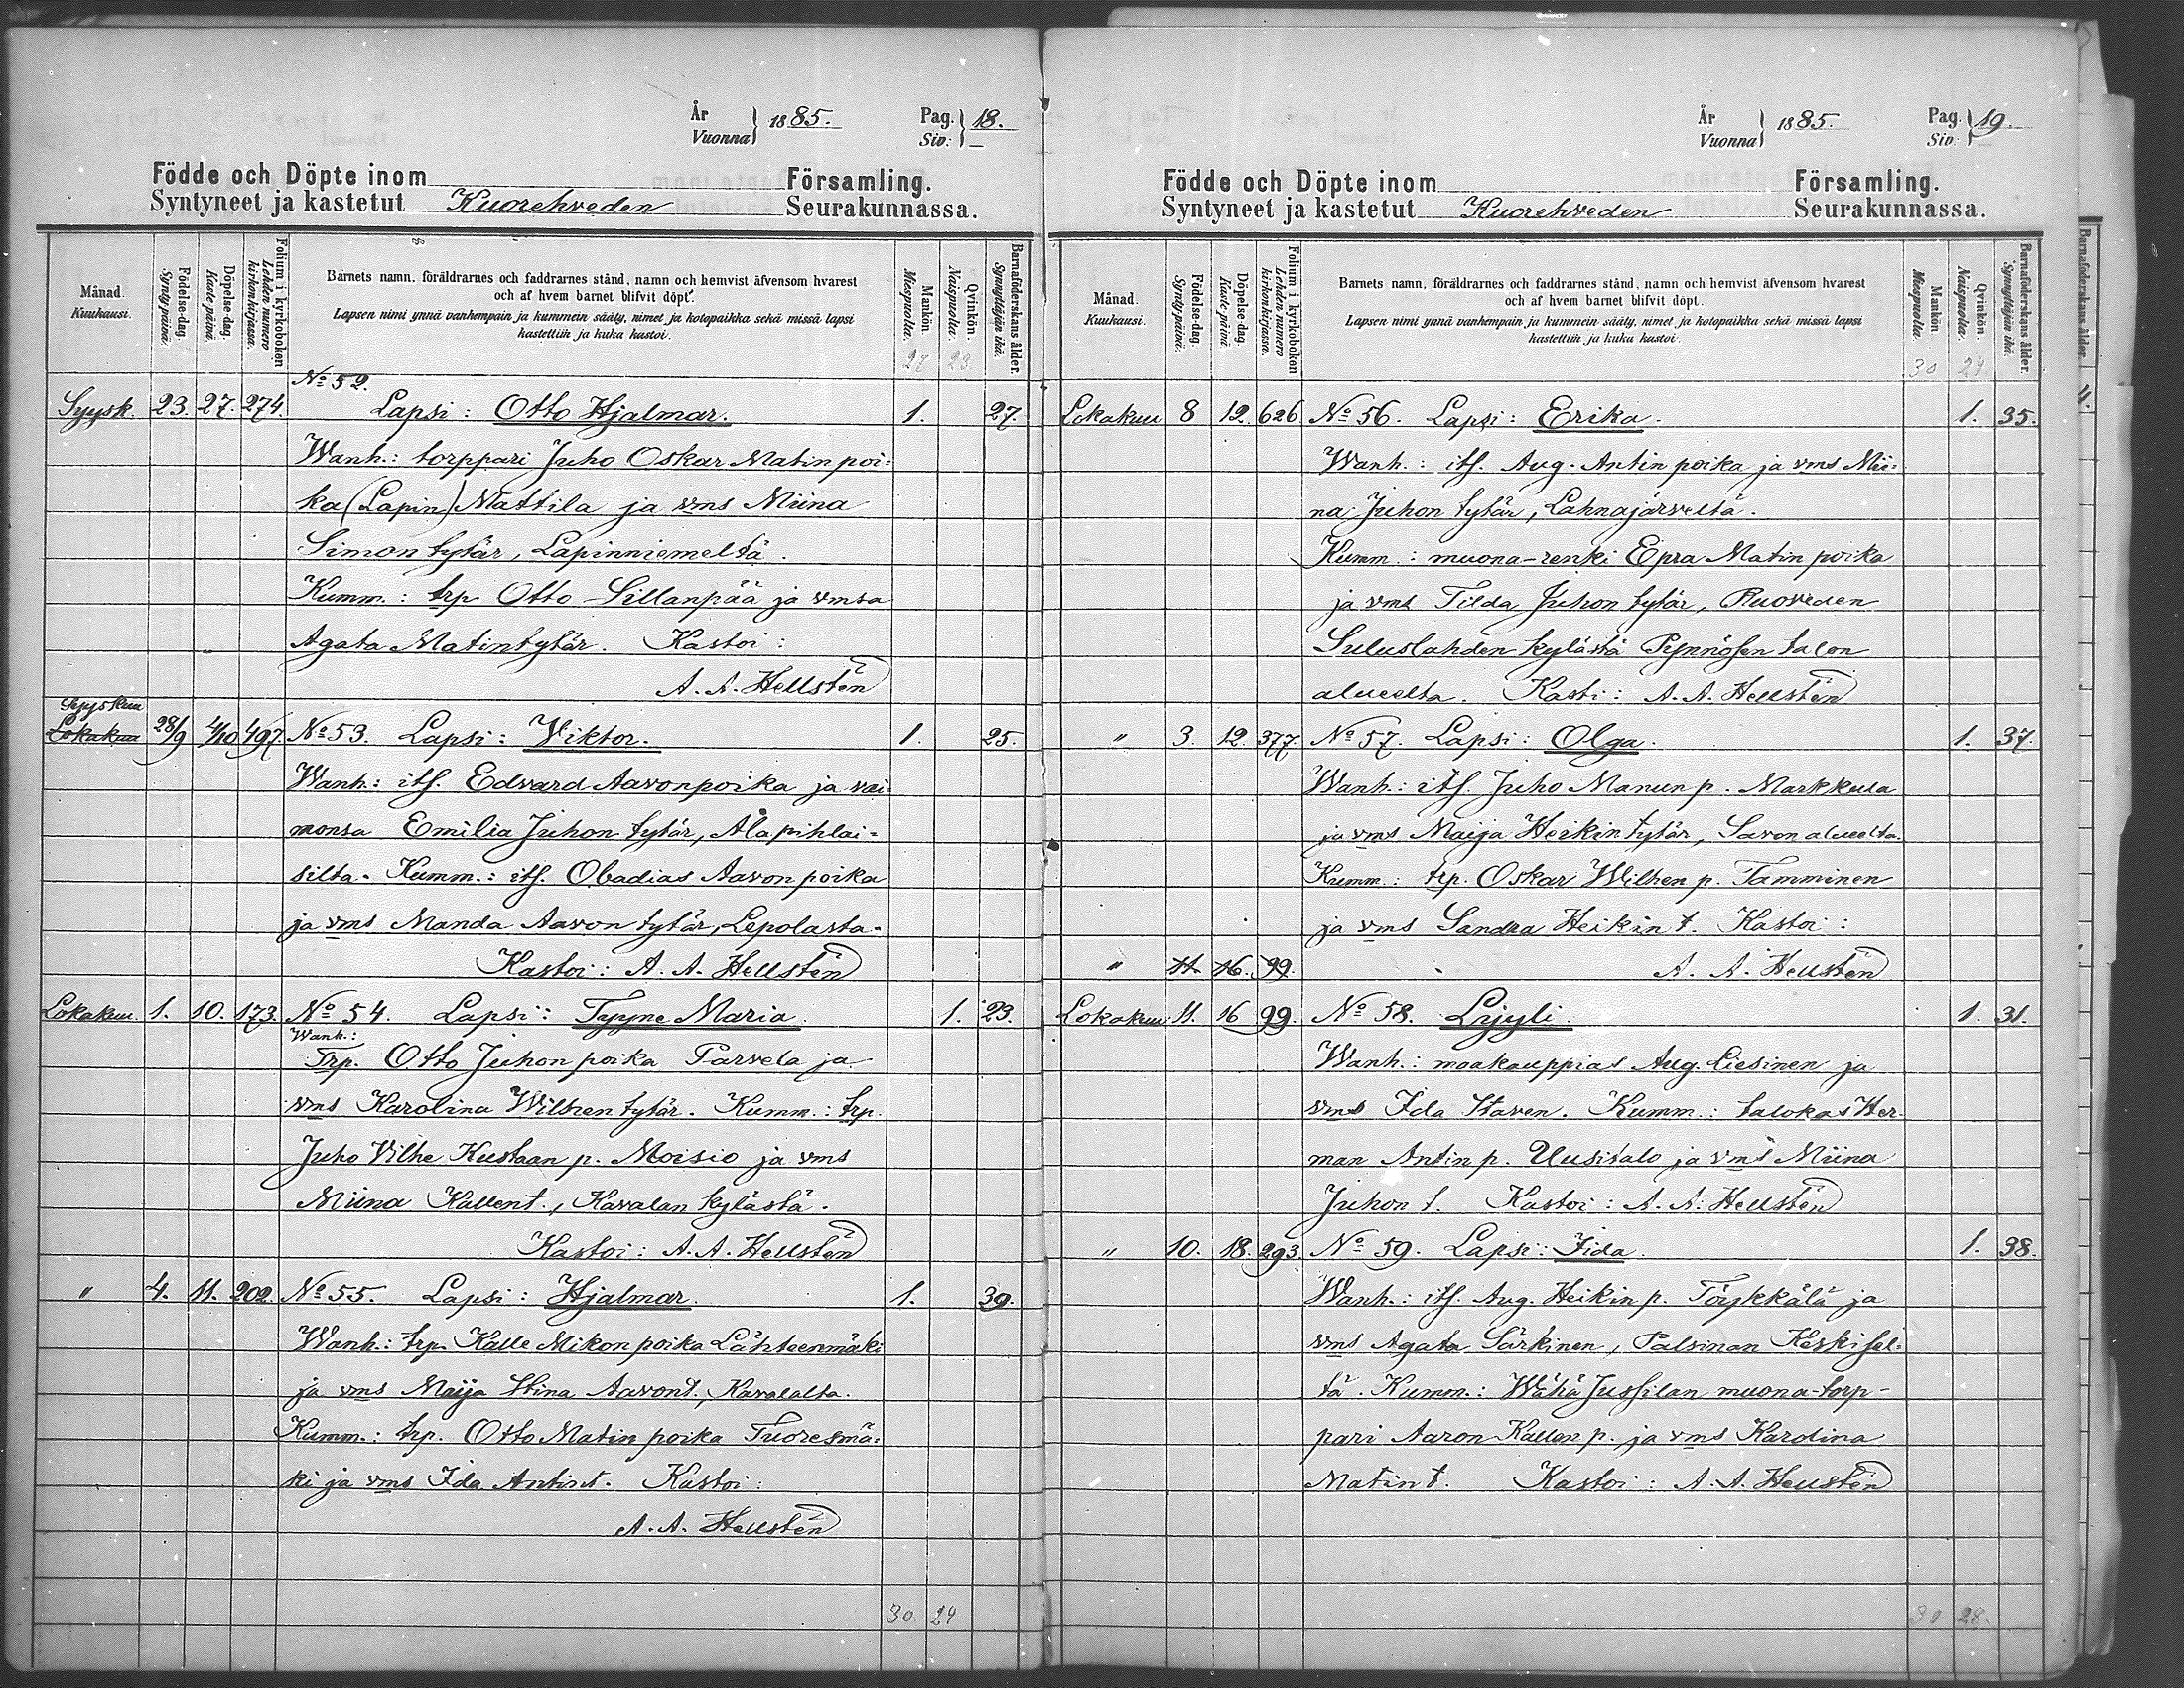 År
Vuonna } 1885. Pag. Siv: } 18.
Födde och Döpte inom Församling.
Syntyneet ja kastetut Kuorehveden Seurakunnassa.
Månad. Kuukausi.
Födelse-dag. Syntypäivä.
Döpelse-dag. Kastepäivä.
Folium i kyrkoboken Lehden numero kirkonkirjassa.
Barnets namn, föräldrarnes och faddrarnes stånd, namn och hemvist äfvensom hvarest
och af hvem barnet blifvit döpt.
Lapsen nimi ynnä vanhempain ja kummein sääty, nimet ja kotopaikka sekä missä lapsi
kastettiin ja kuka kastoi.
Mankön. Miespuolta.
Qvinkön. Naispuolta.
Barnaföderskans ålder. Synnyttäjän ikä.
27 23.
No 52.
Syysk. 23. 27. 274. Lapsi: Otto Hjalmar. 1. 27.
Wanh.: torppari Juho Oskar Matin poi-
ka (Lapin) Mattila ja vms Miina
Simon tytär, Lapinniemeltä.
Kumm.: trp Otto Sillanpää ja vmsa
Agata Matintytär. Kastoi:
A. A. Hellstén
Syyskuu
Lokakuu 28/9 4/10 497. No 53. Lapsi: Wiktor. 1. 25.
Wanh: its. Edvard Aavonpoika ja vai
monsa Emilia Juhon tytär, Alapihlai-
silta. Kumm.: its. Obadias Aavon poika
ja vms Manda Aavon tytär, Lepolasta.
Kastoi: A. A. Hellstén
Lokakuu. 1. 10. 173. No 54. Lapsi: Tyyne Maria. 1. 23.
Wanh.:
Trp. Otto Juhon poika Parvela ja
vms Karolina Wilhen tytär. Kumm.: trp.
Juho Vilhe Kustaan p. Moisio ja vms
Miina Kallent., Kavalan kylästä.
Kastoi: A. A. Hellstén
" 4. 11. 202. No 55. Lapsi: Hjalmar. 1. 39.
Wanh.: trp. Kalle Mikon poika Lähteenmäki
ja vms Maija Stina Aavont., Kavalalta.
Kumm.: trp. Otto Matin poika Tuoresmä-
ki ja vms Ida Antint. Kastoi:
A. A. Hellstén
30 24
År
Vuonna } 1885. Pag. Siv: } 19.
Födde och Döpte inom Församling.
Syntyneet ja kastetut Kuorehveden Seurakunnassa.
Månad. Kuukausi.
Födelse-dag. Syntypäivä.
Döpelse-dag. Kastepäivä
Folium i kyrkoboken Lehden numero kirkonkirjassa.
Barnets namn, föräldrarnes och faddrarnes stånd, namn och hemvist äfvensom hvarest
och af hvem barnet blifvit döpt.
Lapsen nimi ynnä vanhempain ja kummein sääty, nimet ja kotopaikka sekä missä lapsi
kastettiin ja kuka kastoi.
Mankön Miespuolta.
Qvinkön. Naispuolta.
Barnaföderskans ålder. Synnyttäjän ikä.
30 24
Lokakuu 8 12. 626 No 56. Lapsi: Erika. 1. 35.
Wanh.: its. Aug. Antin poika ja vms Mii-
na Juhon tytär, Lahnajärveltä.
Kumm.: muona-renki Epra Matin poika
ja vms Tilda Juhon tytär, Ruoveden
Suluslahden kylästä Pynnösen talon
alueelta. Kasti: A. A. Hellstén
" 3. 12. 377. No 57. Lapsi: Olga. 1. 37.
Wanh.: its. Juho Manun p. Markkula
ja vms Maija Heikin tytär, Savon alueelta.
Kumm.: trp. Oskar Wilhen p. Tamminen
ja vms Sandra Heikin t. Kastoi:
" 11. 16. 99. A. A. Hellstén
Lokakuu 11. 16 99. No 58. Lyyli. 1. 31.
Wanh.: maakauppias Aug. Liesinen ja
vms Ida Staven. Kumm.: talokas Her-
man Antin p. Uusitalo ja vms Miina
Juhon t. Kastoi: A. A. Hellstén
" 10. 18. 293. No 59. Lapsi: Iida. 1. 38.
Wanh.: its. Aug. Heikin p. Töykkälä ja
vms Agata Särkinen, Palsinan Keskisel-
tä. Kumm.: Wähä Jussilan muona-torp-
pari Aaron Kallen p. ja vms Karolina
Matin t. Kastoi: A. A. Hellstén
30 28.
Barnaföderskans ålder.